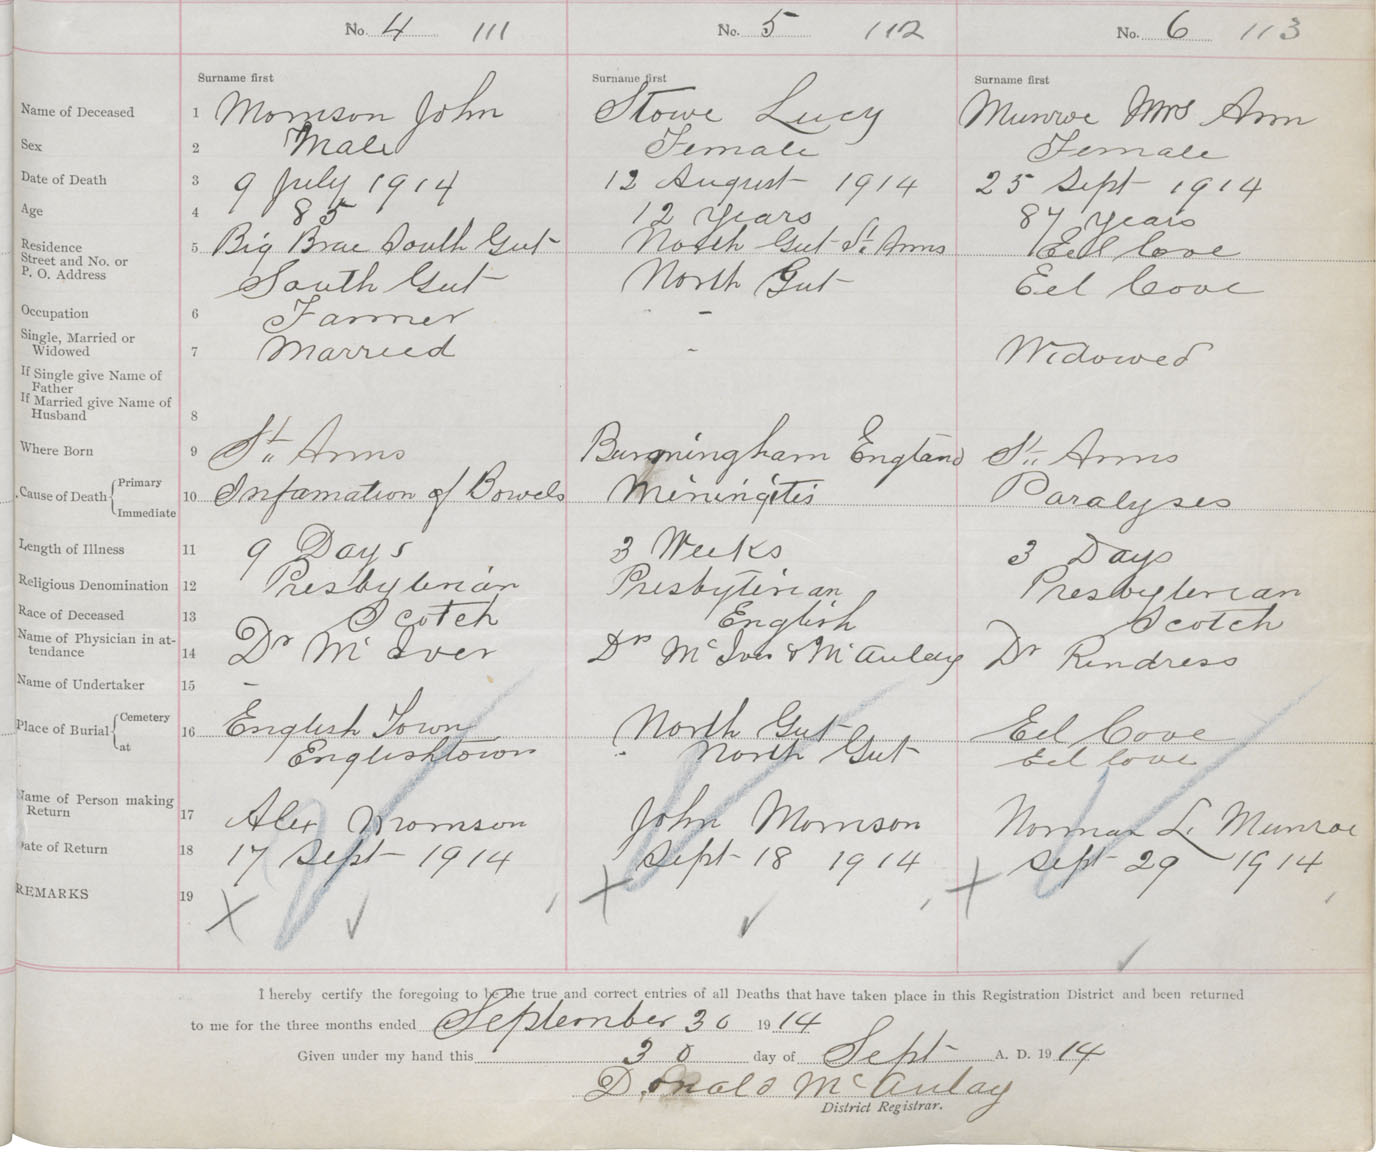 No. 4 111 No. 5 112 No. 6 113
Surname first Surname first Surname first
Name of Deceased 1 Morrison John Stowe Lucy Munroe Mrs Ann
Sex 2 Male Female Female
Date of Death 3 9 July 1914 12 August 1914 25 Sept 1914
Age 4 85 12 years 87 years
Residence 5 Big Brae South Gut North Gut St. Anns Eel Cove
Street and No. or
P. O. Address South Gut North Gut Eel Cove
Occupation 6 Farmer - -
Single, Married or
Widowed 7 Married - Widowed
If Single give Name of
Father
If Married give Name of
Husband 8
Where Born 9 St. Anns Burmingham England St. Anns
Cause of Death { Primary
10 Infamation of Bowels Miningitis Paralyses
Immediate
Length of Illness 11 9 Days 3 Weeks 3 Days
Religious Denomination 12 Presbyterian Presbyterian Presbyterian
Race of Deceased 13 Scotch English Scotch
Name of Physician in at-
tendance 14 Dr McIver Drs McIver & McAulay Dr Rindress
Name of Undertaker 15 -
Place of Burial { Cemetery 16 English Town North Gut Eel Cove
at Englishtown North Gut Eel Cove
Name of Person making
Return 17 Alex Morrison John Morrison Norman L. Munroe
Date of Return 18 17 Sept 1914 Sept 18 1914 Sept 29 1914
REMARKS 19 X ✓ X ✓ X ✓
I hereby certify the foregoing to be the true and correct entries of all Deaths that have taken place in this Registration District and been returned
to me for the three months ended September 30 1914
Given under my hand this 30 day of Sept A. D. 1914
Donald McAulay
District Registrar.